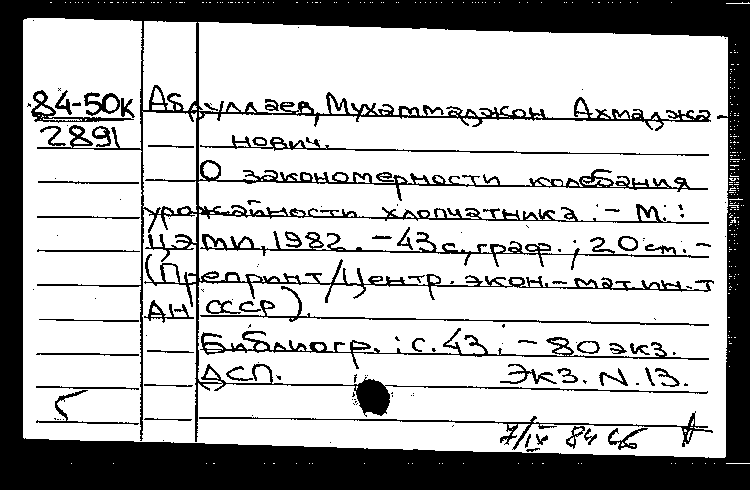 84-50к Абдуллаев, Мухаммаджон Ахмаджа-
2891 нович.
О закономерности колебания
урожайности хлопчатника. - М.:
ЦЭМИ, 1982. - 43 с., граф.; 20 см. -
(Препринт/Центр. экон.-мат. ин-т
АН СССР).
Библиогр.: с. 43. - 80 экз.
ДСП. Экз. N. 13.
7/IV 84